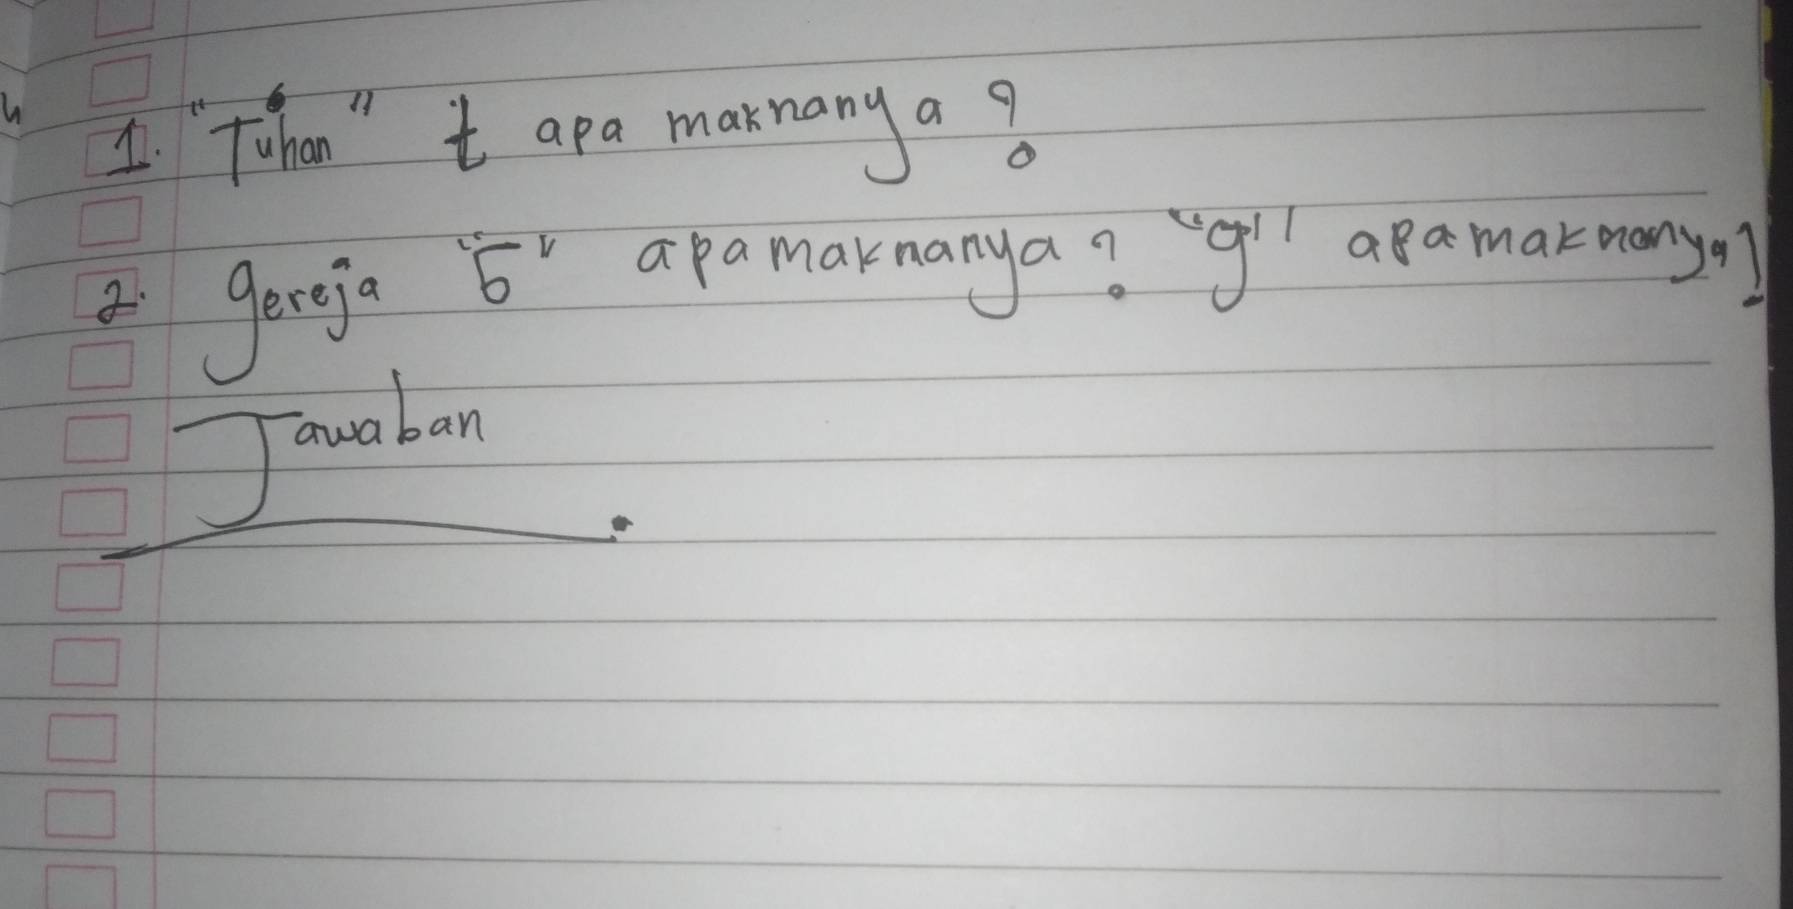 1. "Tuhan" t apa maknanya?
2. gereja "5" apa maknanya? "g" apa maknanya?
Jawaban